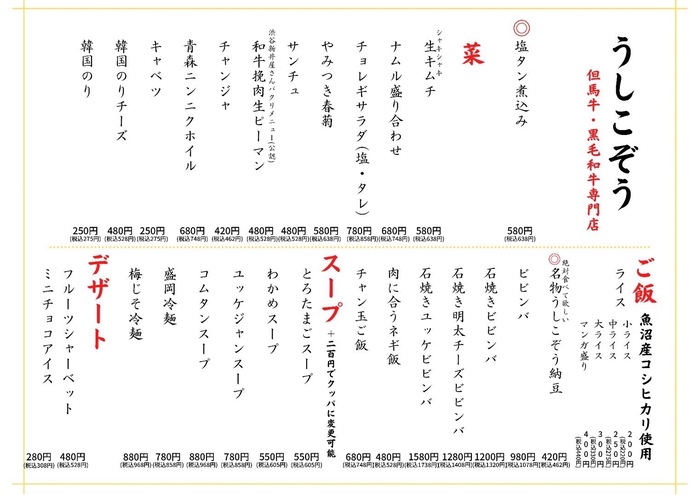 うしこぞう
但馬牛・黒毛和牛専門店
◎塩タン煮込み
580円
(税込638円)
菜
シャキシャキ
生キムチ
580円
(税込638円)
ナムル盛り合わせ
680円
(税込748円)
チョレギサラダ(塩・タレ)
780円
(税込858円)
やみつき春菊
580円
(税込638円)
サンチュ
480円
(税込528円)
渋谷新井屋さんパクリメニュー(公認)
和牛挽肉生ピーマン
480円
(税込528円)
チャンジャ
420円
(税込462円)
青森ニンニクホイル
680円
(税込748円)
キャベツ
250円
(税込275円)
韓国のりチーズ
480円
(税込528円)
韓国のり
250円
(税込275円)
ご飯 魚沼産コシヒカリ使用
ライス
小ライス
200円
(税込220円)
中ライス
250円
(税込275円)
大ライス
300円
(税込330円)
マンガ盛り
400円
(税込440円)
絶対食べて欲しい
◎名物うしこぞう納豆
420円
(税込462円)
ビビンバ
980円
(税込1078円)
石焼きビビンバ
1200円
(税込1320円)
石焼き明太チーズビビンバ
1280円
(税込1408円)
石焼きユッケビビンバ
1580円
(税込1738円)
肉に合うネギ飯
480円
(税込528円)
チャン玉ご飯
680円
(税込748円)
スープ +二百円でクッパに変更可能
とろたまごスープ
550円
(税込605円)
わかめスープ
550円
(税込605円)
ユッケジャンスープ
780円
(税込858円)
コムタンスープ
880円
(税込968円)
盛岡冷麺
780円
(税込858円)
梅じそ冷麺
880円
(税込968円)
デザート
フルーツシャーベット
480円
(税込528円)
ミニチョコアイス
280円
(税込308円)